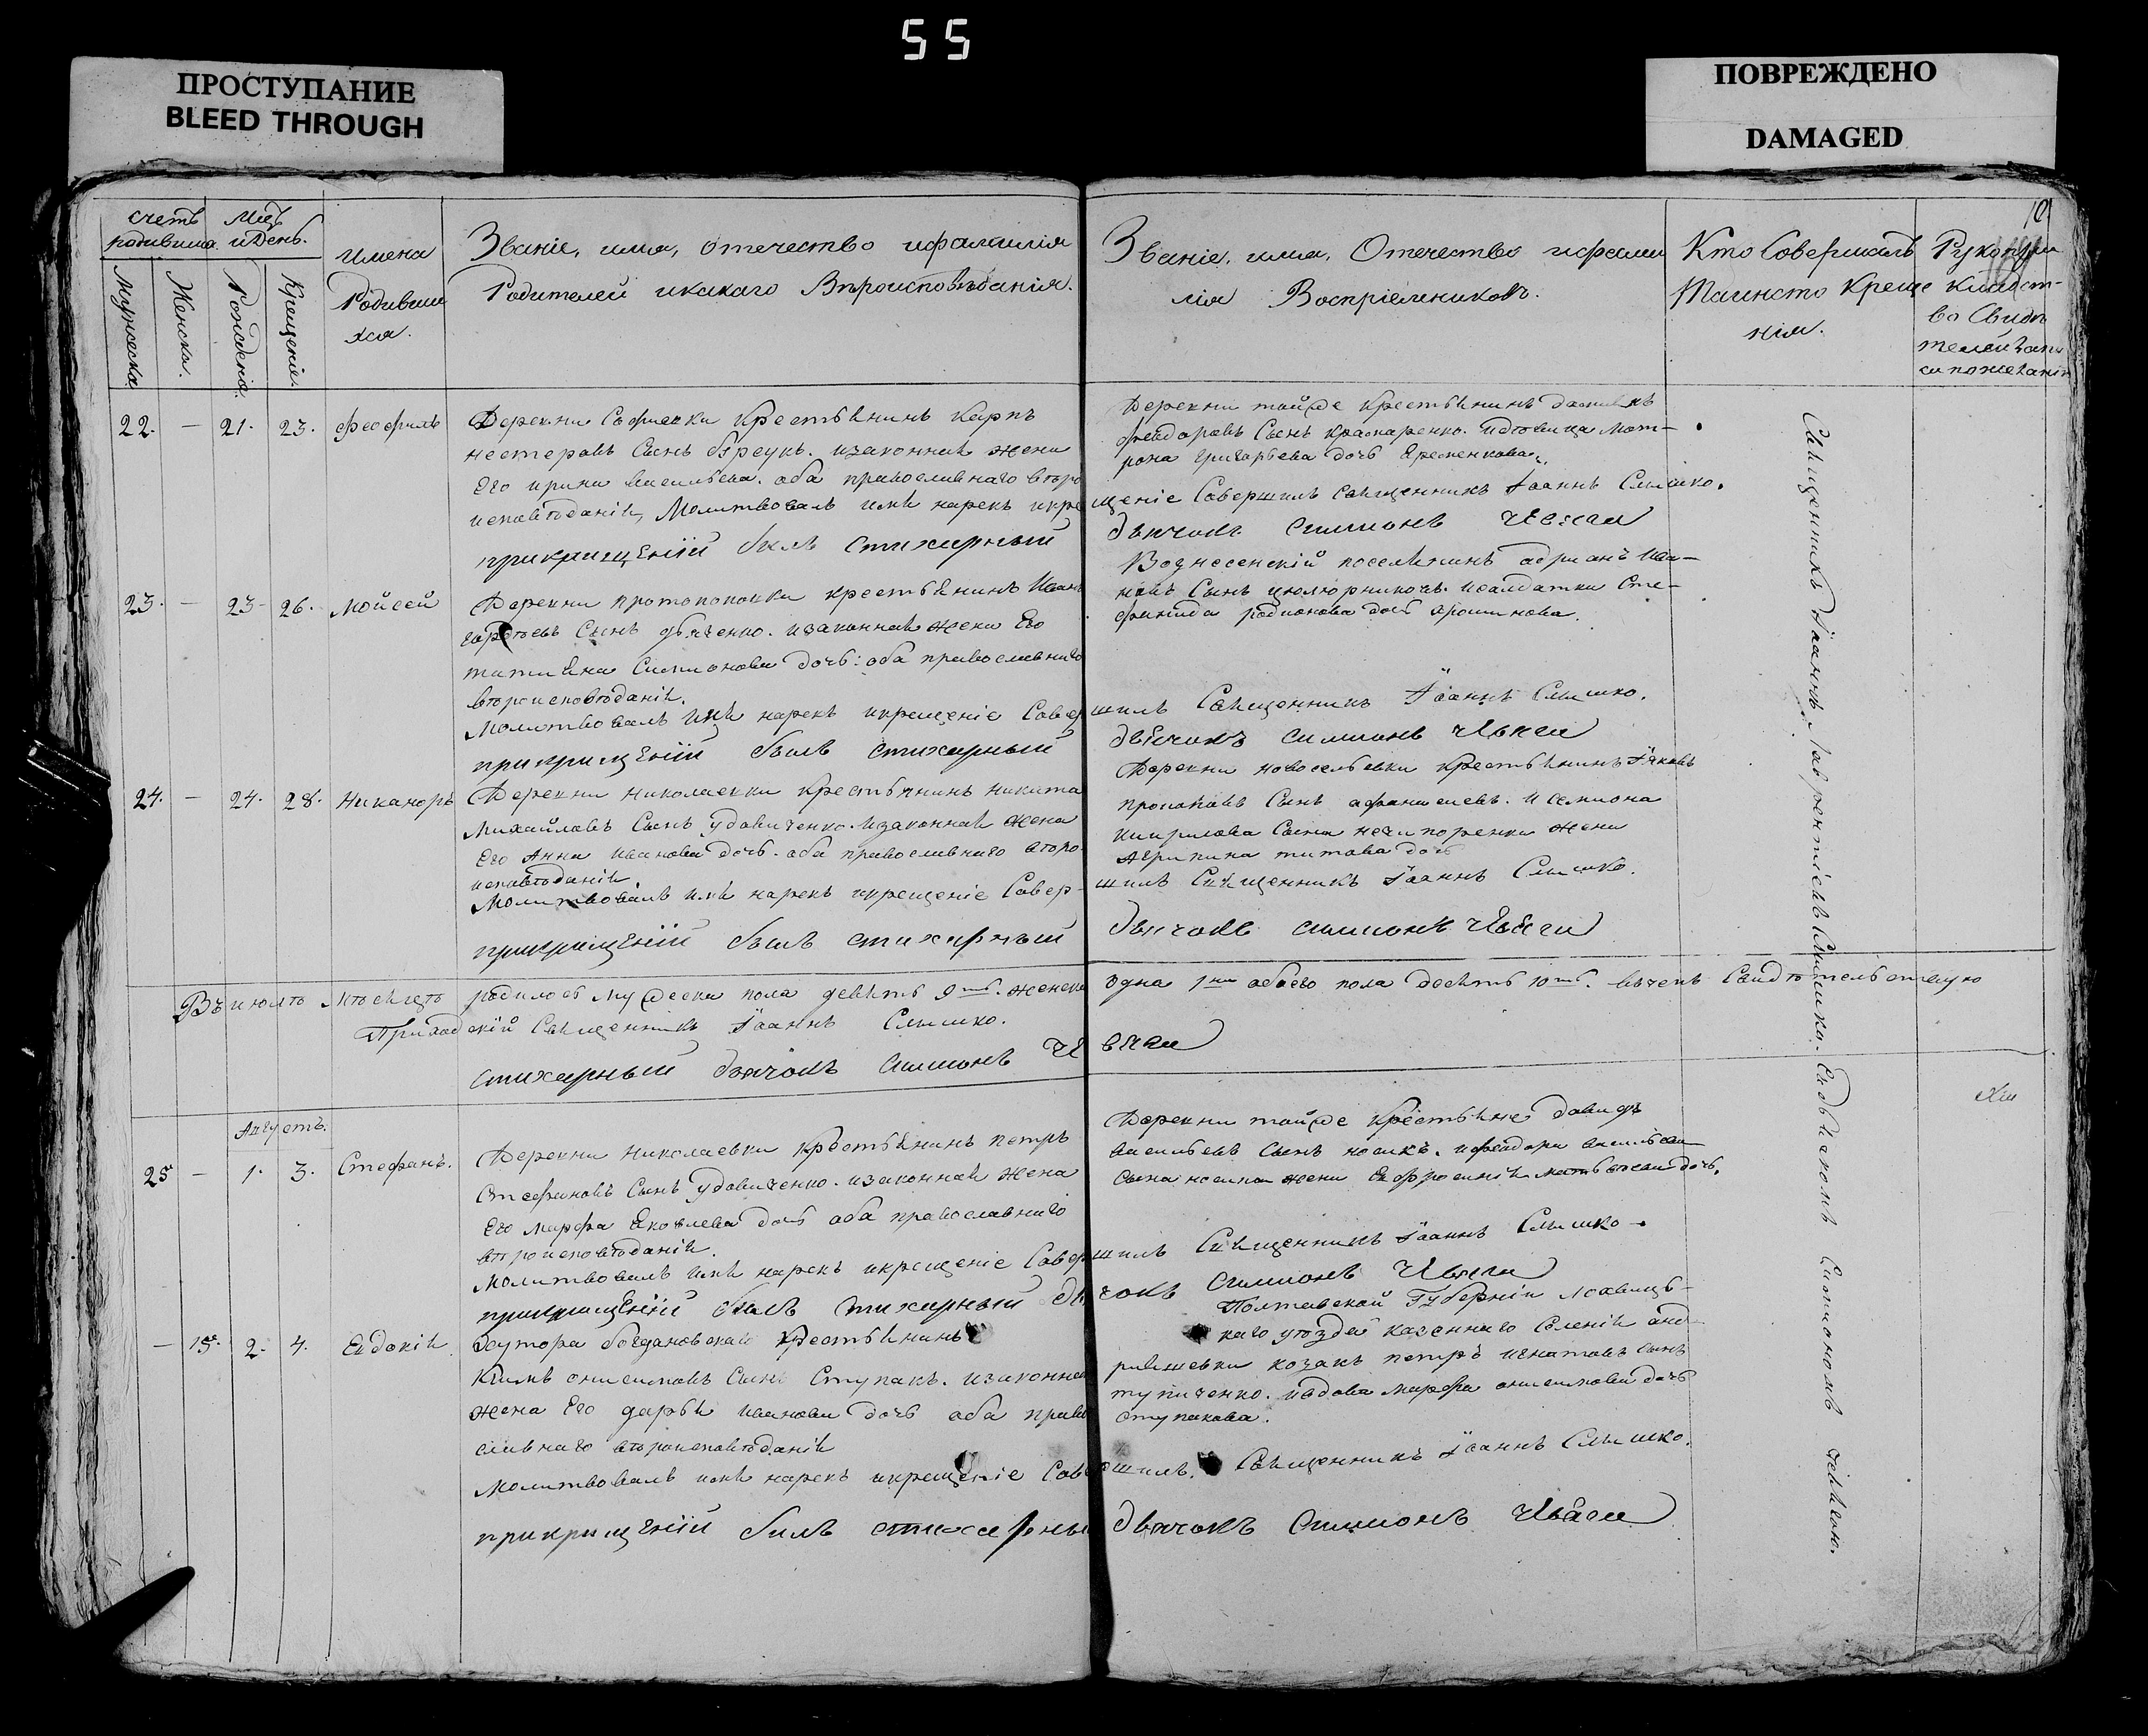 55
ПРОСТУПАНИЕ
BLEED THROUGH
ПОВРЕЖДЕНО
DAMAGED
счетъ родивших.
Мцъ и День.
Мужеска.
Женска.
Рожденія.
Крещенія.
Имена Родившихся.
Званіе, имя, отечество ифамилія
Родителей икакаго Вѣроисповѣданія.
Званіе, имя, Отечество ифами
лія Воспріемниковъ.
Кто Совершалъ
Таинсто Креще
нія.
Рукопри
кладст-
во Свидѣ
телей
22. — 21. 23. Феофилъ
Деревни Софиевки Крестьянинъ Карпъ
нестеровъ Сынъ изаконная жена
Его ирина васильева. оба православнаго вѣро
исповѣданія, Молитвовалъ имя нарекъ икре
щеніе Совершилъ священникъ Іоаннъ Слышко.
прикращеніи былъ стихарный
дьячокъ симионъ
Деревни тойже крестьянинъ
феодоровъ Сынъ ивдовица Мот-
рона григорьева дочь
23. — 23 26. Мойсей
Деревни протопоповки крестьянинъ Иванъ
Сынъ дьяченко. изаконная жена Его
татияна Симионова дочь: оба православнаго
вѣроисповѣданія.
Молитвовалъ имя нарекъ икрещеніе Совер
шилъ Священникъ Іоаннъ Слышко.
прикращеніи былъ стихарный
дьячокъ симионъ
Вознесенскій поселянинъ адрианъ Ива-
новъ Сынъ исалдатка Сте-
фанида родионова дочь
24. — 24. 28. Никаноръ
Деревни николаевки крестьянинъ никита
Михайловъ Сынъ удовиченко. изаконная жена
Его Анна иванова дочь. оба православнаго вѣро
исповѣданія
Молитвовалъ имя нарекъ икрещеніе Совер-
шилъ Священникъ Іоаннъ Слышко.
прикращеніи былъ стихарный
дьячокъ симионъ
Деревни новоселевки крестьянинъ Іяковъ
Сынъ афанасиевъ. и семиона
кирилова Сына нечипоренка жена
Агрипина титова дочь
Въ июлѣ мѣсяцѣ родилось мужеска пола девять 9ть. женска
одна 1на обоего пола десять 10ть. вчемъ Свидѣтельствую
Приходскій Священникъ Іоаннъ Слышко.
стихарный дьячокъ симионъ
Августъ.
25 — 1. 3. Стефанъ.
Деревни николаевки крестьянинъ петръ
Стефановъ Сынъ удовиченко. изаконная жена
Его марфа Яковлева дочь оба православнаго
вѣроисповѣданія.
Молитвовалъ имя нарекъ икрещеніе Совер
шилъ Священникъ Іоаннъ Слышко.
прикращеніи былъ стихарный дья
чокъ симионъ
Деревни тойже крестьяне давидъ
васильевъ Сынъ носикъ. ифеодора васильева
Сына носика жена Евфросинія матвѣева дочь.
— 15. 2. 4. Евдокія
Хутора богдановскаго крестьянинъ
Климъ онисимовъ Сынъ Ступакъ. изаконная
жена Его дарья иванова дочь оба право
славнаго вѣроисповѣданія
Молитвовалъ имя нарекъ икрещеніе Сове
ршилъ. Священникъ Іоаннъ Слышко.
прикращеніи былъ стихарны
дьячокъ Симионъ
Полтавской Губерніи
каго уѣзда казеннаго Селенія анд
рияшевки козакъ петръ игнатовъ сынъ
ивдова марфа онисимова дочь
ступакова.
Священникъ Іоаннъ Лаврентіевъ Слышко. Сдьячкомъ Симиономъ